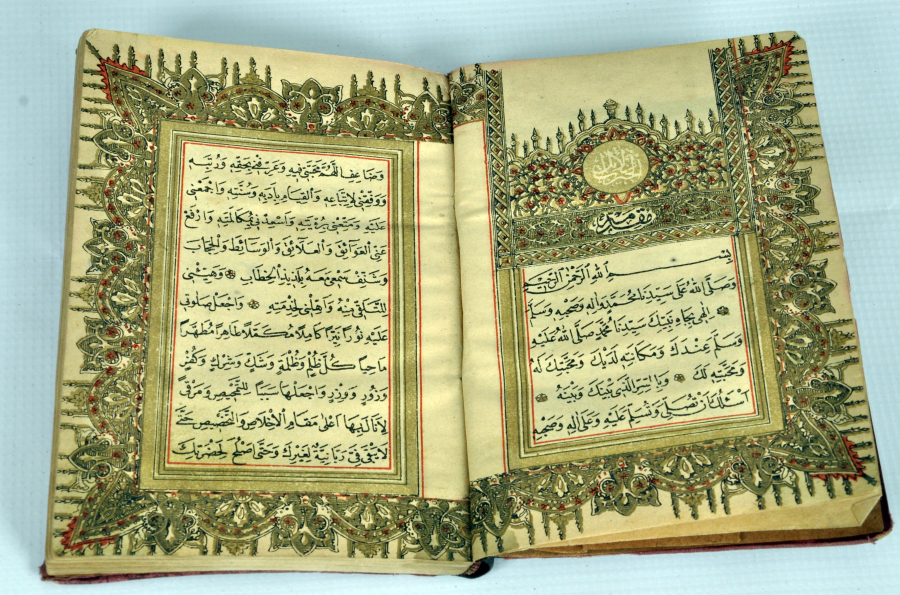 مقدمة
بسم الله الرحمن الرحيم
وصلى الله على سيدنا محمد وآله وصحبه وسلم
الهي بجاه نبيك سيدنا محمد صلى الله عليه
وسلم عندك ومكانته لديك ومحبتك له
ومحبته لك وبالسر الذي بينك وبينه
اسئلك ان تصلي وتسلم عليه وعلى اله وصحبه
وضاعف اللهم محبتي فيه وعرفني بحقه ورتبه
ووفقني لاتباعه والقيام بآدابه وسنته واجمعني
عليه ومتعني برؤيته واسعدني بمكالمته وارفع
عني العوائق والعلائق والوسائط والحجاب
وشنف سمعي معه بلذيذ الخطاب وهيئني
للتلقي منه واهلني لخدمته واجعل صلوتي
عليه نورا نيرا كاملا مكملا طاهرا مطهرا
ماحيا كل ظلم وظلمة وشك وشرك وكفر
وزور ووزر واجعلها سببا للتمحيص ومرقى
لانال بها اعلى مقام الاخلاص والتخصيص حتى
لا يبقى في ربانية لغيرك وحتى اصلح لحضرتك